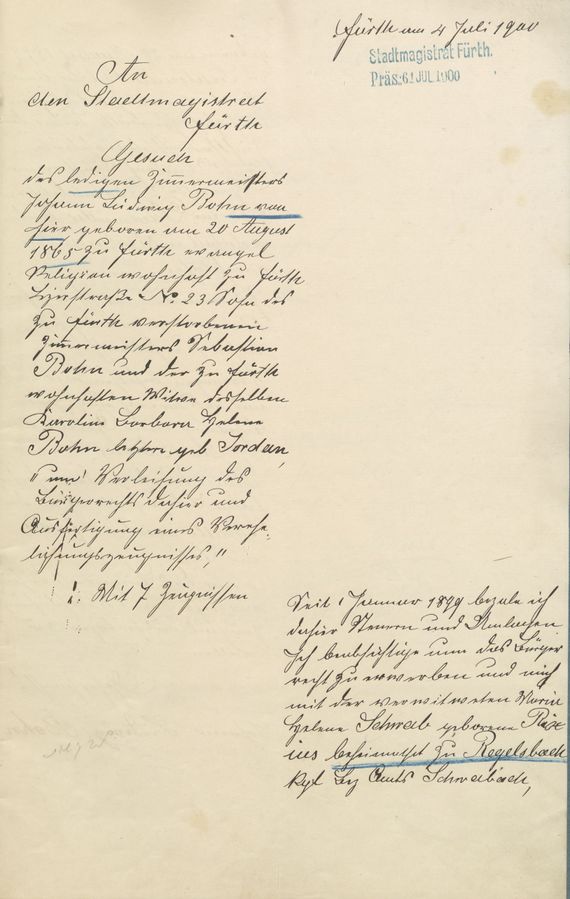 Fürth am 4 Juli 1900
Stadtmagistrat Fürth.
Präs. 6. JUL. 1900
An
den Stadtmagistrat
Fürth
Gesuch
des ledigen Zimmermeisters
Johann Ludwig Bohn von
hier geboren am 20 August
1865 zu Fürth evangel
Religion wohnhaft zu Fürth
No. 23 Sohn des
zu Fürth verstorbenen
Zimmermeisters Sebastian
Bohn und der zu Fürth
wohnhaften Witwe desselben
Karolina Barbara Helene
Bohn letztere geb Jordan,
"um Verleihung des
Bürgerrechts dahier und
Ausfertigung eines Verehe-
lichungszeugnisses,"
Mit 7 Zeugnissen
Seit 1 Januar 1899 bezale ich
dahier Steuern und Umlagen
Ich beabsichtige nun das Bürger
recht zu erwerben und mich
mit der verwitweten Maria
Helene Schwab geborene
beheimathet zu Regelsbach
kgl Bez Amts Schwabach,